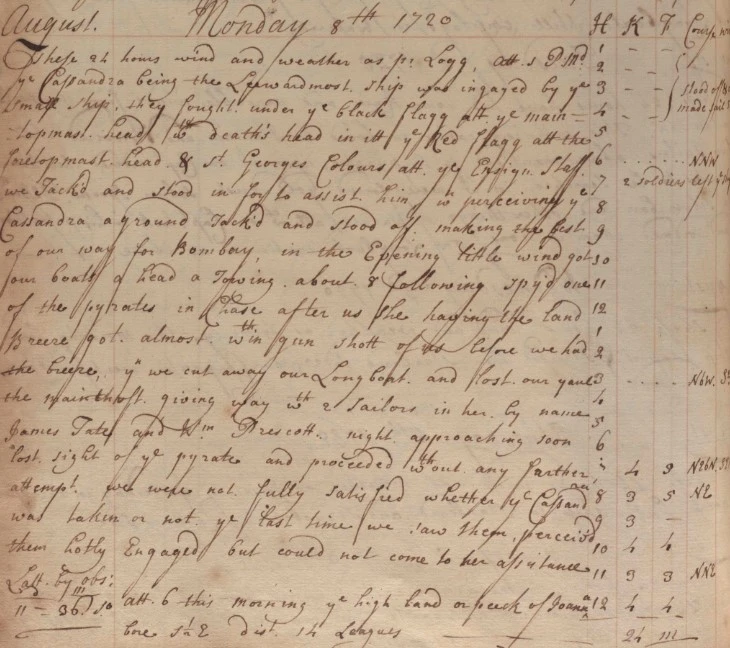 August. Monday 8th 1720 H K F Course
These 24 hours wind and weather as pr Logg, att 1 P Md 1 - -
ye Cassandra being the Leewardmost ship was ingaged by ye 2 - -
small ship, they fought under ye black flagg att ye main- 3 - - stood off &
topmast head wth death's head in itt ye Red flagg att the 4 - - made sail
foretopmast head & St Georges Colours att ye Ensign Staff. 5
we Tack'd and stood in for to assist him, & perceiving ye 6 ...... NNW
Cassandra aground Tack'd and stood off making the best 7 2 soldiers left ye
of our way for Bombay, in the Evening little wind got 8
our boats a head a Towing about 8 following spy'd one 9
of the pyrates in Chase after us she having the land 10
Breeze got almost wthin gun shott of us before we had 11
the breeze, yn we cut away our Longboat and lost our yaul 12
the mainthoft giving way wth 2 Sailors in her by name 1
James Tate and Wm Prescott night approaching soon 2
lost sight of ye pyrate and proceeded wthout any farther 3 .... NbW
attempt. we were not fully satisfied whether ye Cassandra 4
was taken or not ye last time we saw them perceiv'd 5
them hotly Engaged but could not come to her assistance 6
Latt. by obs: 7 4 9 NEbN
11 - 36 So att 6 this morning ye high land or peeck of Joanna 8 3 5 NE
bore S1/2E dist. 14 Leagues 9 3 -
10 4 4
11 3 3 NNE
12 4 4
24 m